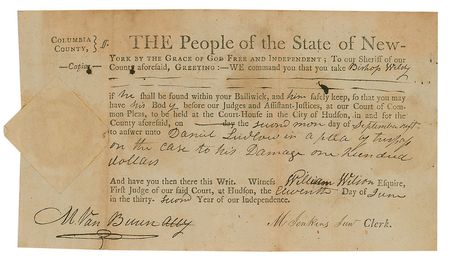 COLUMBIA
COUNTY, } ss.
—Copy—
THE People of the State of NEW-
YORK BY THE GRACE OF GOD FREE AND INDEPENDENT; To our Sheriff of our
County aforesaid, GREETING:—WE command you that you take Bishop
if he shall be found within your Bailiwick, and him safely keep, so that you may
have his Body before our Judges and Assistant-Justices, at our Court of Com-
mon Pleas, to be held at the Court-House in the City of Hudson, in and for the
County aforesaid, on the second mon day of September next
to answer unto Daniel Ludlow in a plea of trespass
on the case to his Damage one hundred
dollars
And have you then there this Writ. Witness William Wilson Esquire,
First Judge of our said Court, at Hudson, the Eleventh Day of June
in the thirty-second Year of our Independence.
M. Van Buren Atty
M Jenkins Junr Clerk.